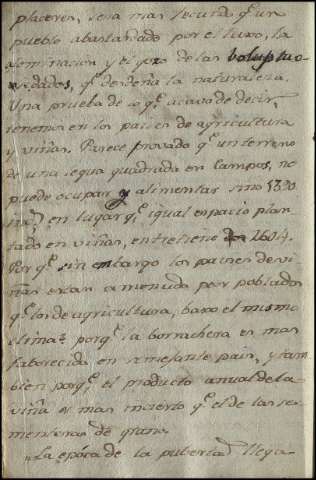 placeres, sera mas fecundo qᵉ un
pueblo abastardado por el luxo, la
afeminacion y el goze de las voluptuo-
sidades, qᵉ desdeña la naturaleza.
Una prueba de lo qᵉ acavo de decir,
tenemos en los paises de agricultura
y viñas. Parece provado qᵉ un terreno
de una legua quadrada en campos, no
puede ocupar y alimentar sino 1390
en lugar qᵉ igual espacio plan-
tado en viñas, entretiene 2604.
Por qᵉ sin embargo los paises de vi-
ñas estan a menudo peor poblados
qᵉ los de agricultura, baxo el mismo
clima? porqᵉ la borrachera es mas
faborecida en semejante pais, y tam-
bien porqᵉ el producto anual de la
viña es mas incierto qᵉ el de las se-
menteras de grano.
La epoca de la pubertad llega